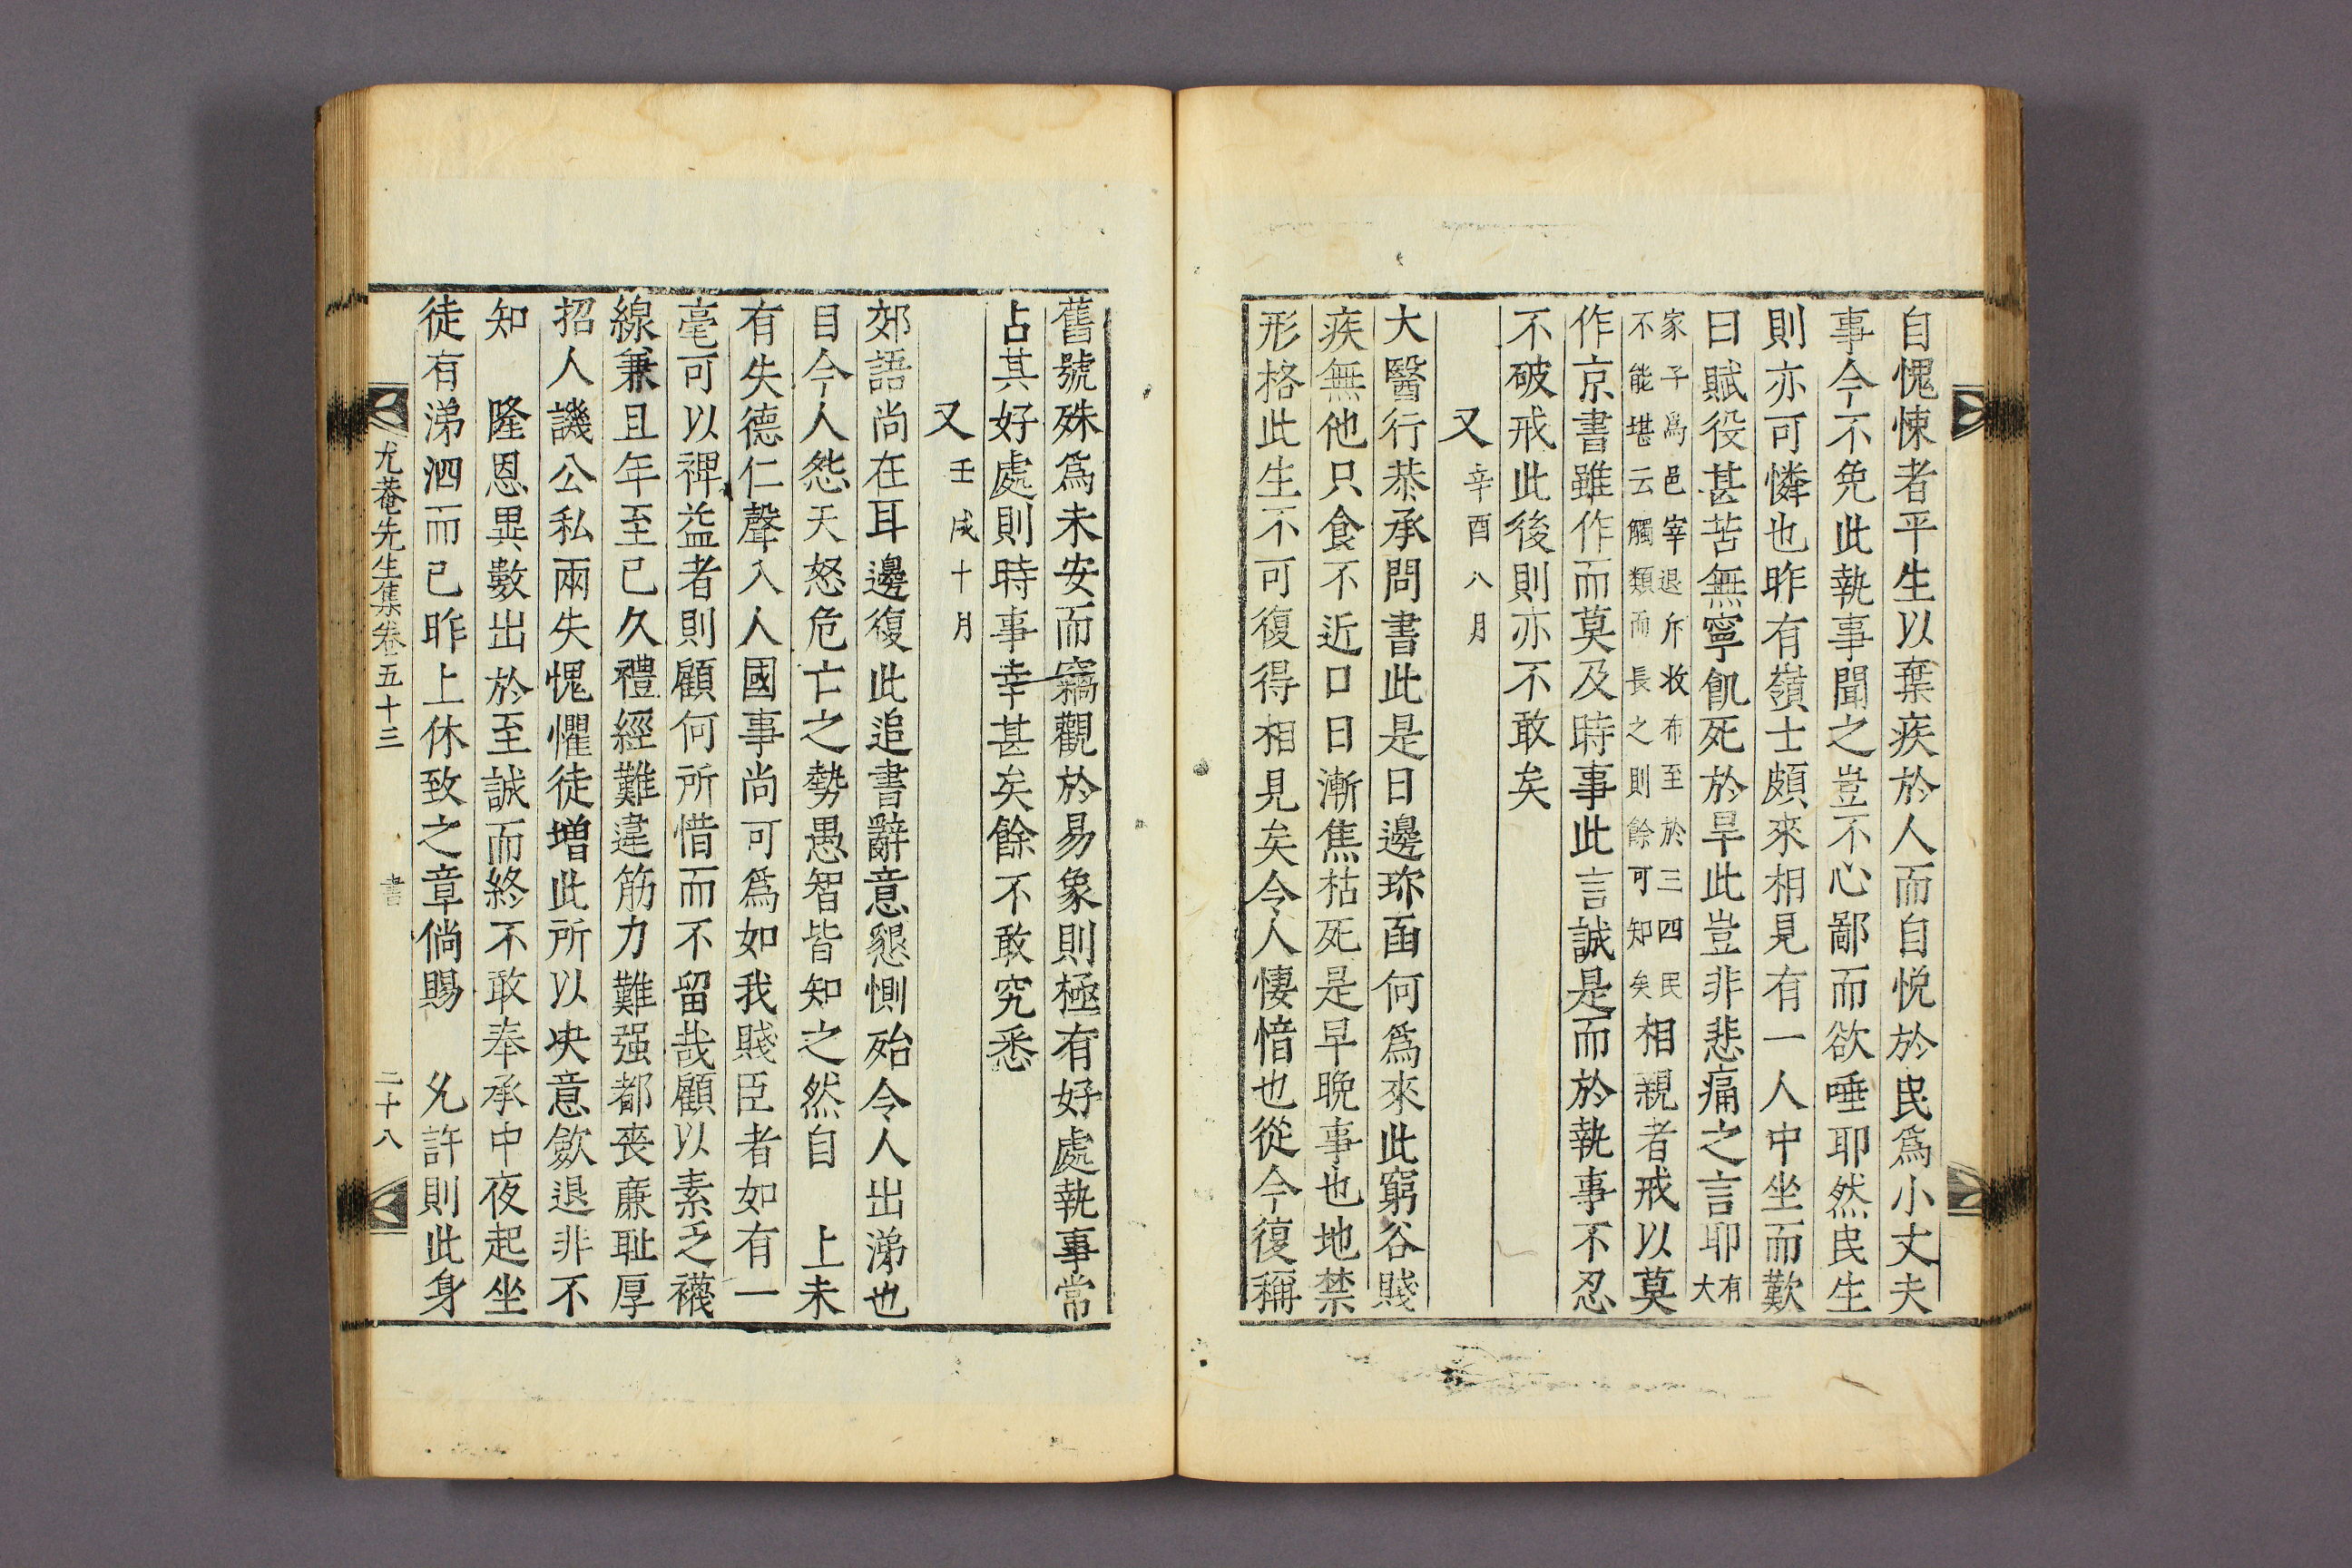 自愧悚者平生以棄疾於人而自悅於民爲小丈夫
事今不免此執事聞之豈不心鄙而欲唾耶然民生
則亦可憐也昨有嶺士頗來相見有一人中坐而歎
曰賦役甚苦無寧飢死於旱此豈非悲痛之言耶有大
家子爲邑宰退斥收布至於三四民
不能堪云觸類而長之則餘可知矣相親者戒以莫
作京書雖作而莫及時事此言誠是而於執事不忍
不破戒此後則亦不敢矣
又辛酉八月
大醫行恭承問書此是日邊珎函何爲來此窮谷賤
疾無他只食不近口日漸焦枯死是早晚事也地禁
形格此生不可復得相見矣令人悽愔也從今復稱
舊號殊爲未安而竊觀於易象則極有好處執事常
占其好處則時事幸甚矣餘不敢究悉
又壬戌十月
郊語尚在耳邊復此追書辭意懇惻殆令人出涕也
目今人怨天怒危亡之勢愚智皆知之然自 上未
有失德仁聲入人國事尚可爲如我賤臣者如有一
毫可以裨益者則顧何所惜而不留哉顧以素乏襪
線兼且年至已久禮經難違筋力難强都喪廉耻厚
招人譏公私兩失愧懼徒增此所以决意歛退非不
知 隆恩異數出於至誠而終不敢奉承中夜起坐
徒有涕泗而已昨上休致之章倘賜 允許則此身
尤菴先生集卷五十三 書 二十八